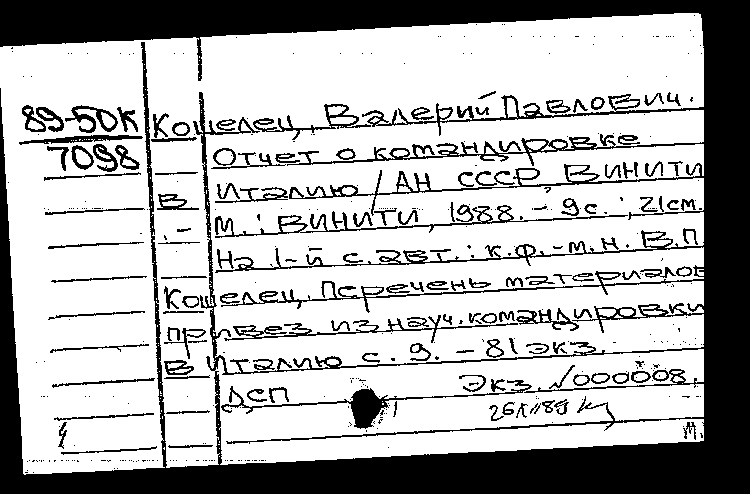 89-50К Кошелец, Валерий Павлович.
7098 Отчет о командировке
в Италию / АН СССР, ВИНИТИ
.- М.: ВИНИТИ, 1988. - 9с.; 21см.
На 1-й с. авт.: к.ф.-м.н. В.П
Кошелец. Перечень материалов
привез из науч. командировки
в Италию с. 9. - 81 экз.
ДСП Экз. №000008.
М.